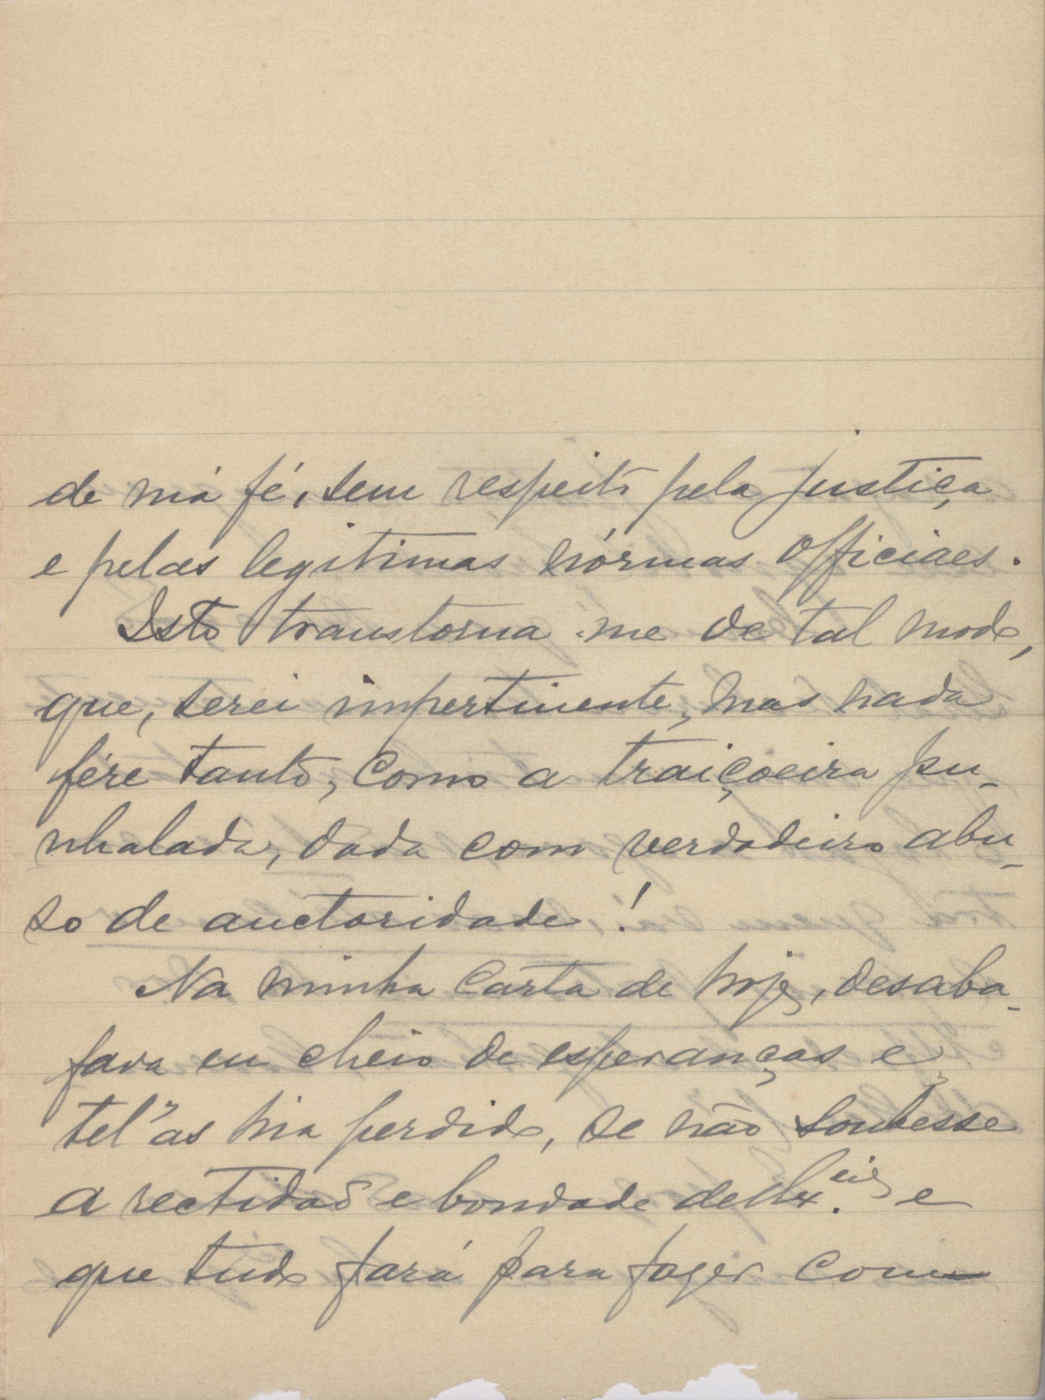 de má fé, sem respeito pela justiça
e pelas legitimas nórmas officiaes.
Isto transtorna-me de tal modo,
que, serei impertinente, mas nada
fére tanto, como a traiçoeira pu-
nhalada, dada com verdadeiro abu-
so de auctoridade!
Na minha carta de hoje, desaba-
fava eu cheio de esperanças e
tel-as hia perdido, se não soubesse
a rectidão e bondade de e
que tudo fará para fazer com